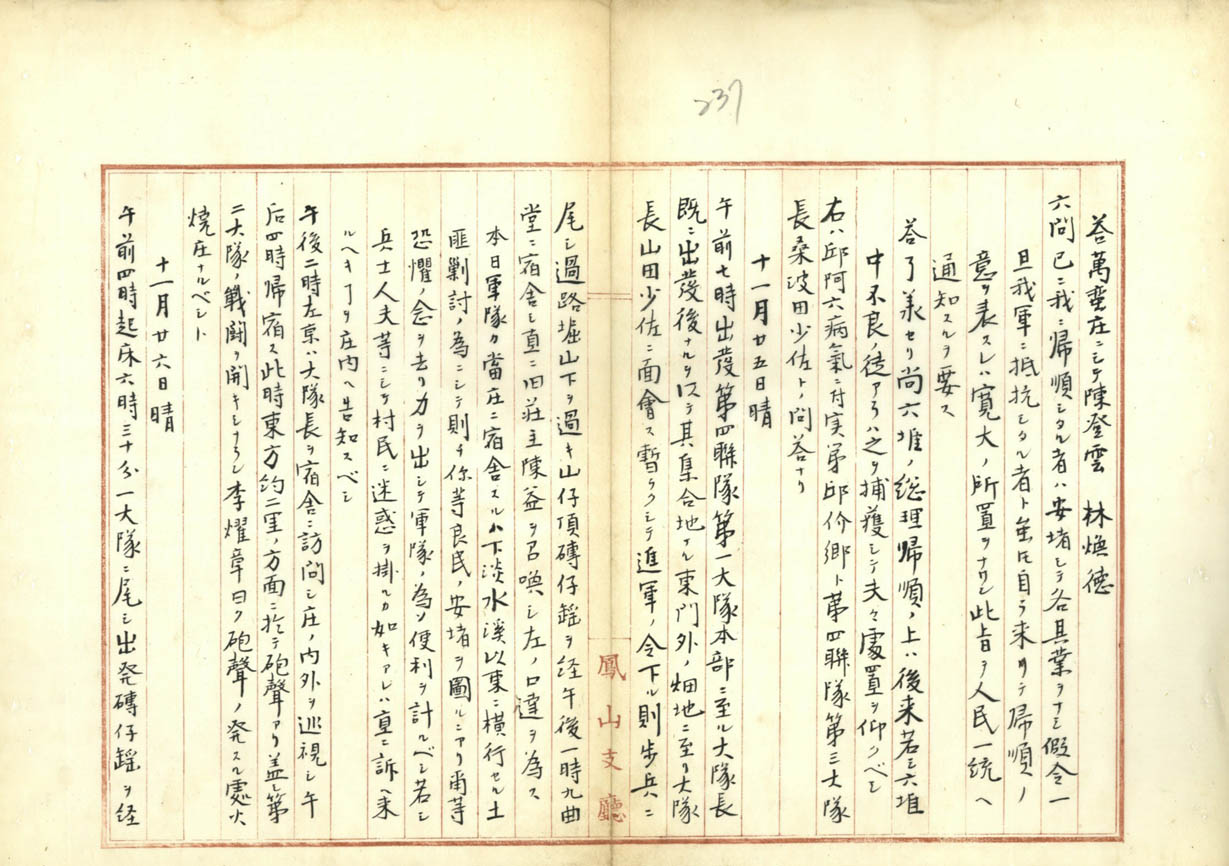 237
荅萬蛮庄ニシテ陳澄雲 林煥德
六問已ニ我ニ帰順シタル者ハ安堵シテ各其業ヲナシ假令一
旦我軍ニ抵抗シタル者ト虽𪜈自ラ来リテ帰順ノ
意ヲ表スレハ寛大ノ所置ヲナサン此旨ヲ人民一統ヘ
通知スルヲ要ス
荅了承セリ尚六堆ノ総理帰順ノ上ハ後来若シ六堆
中不良ノ徒アラハ之ヲ捕獲シテ夫々處置ヲ仰クベシ
右ハ邱阿六病氣ニ付実弟邱价郷ト第四聯隊第三大隊
長桑波田少佐トノ問答ナリ
十一月廿五日晴
午前七時出發第四聯隊第一大隊本部ニ至ル大隊長
既ニ出發後ナルヲ以テ其集合地ナル東門外ノ畑地ニ至リ大隊
長山田少佐ニ面會ス暫ラクシテ進軍ノ令下ル則步兵ニ
鳳山支廳
尾シ過路堀山下ヲ過キ山仔頂磚仔磘ヲ经午後一時九曲
堂ニ宿舎シ直ニ旧莊主陳益ヲ召喚シ左ノ口達ヲ為ス
本日軍隊カ當庄ニ宿舎スルハ下淡水溪以東ニ横行セル土
匪剿討ノ為ニシテ則チ你等良民ノ安堵ヲ圖ルニアリ甭等
恐懼ノ念ヲ去リ力ヲ出シテ軍隊ノ為メ便利ヲ計ルベシ若シ
兵士人夫等ニシテ村民ニ迷惑ヲ掛ルカ如キアレハ直ニ訴ヘ来
ルヘキヿヲ庄内ヘ告知スベシ
午後二時左京ハ大隊長ヲ宿舎ニ訪問シ庄ノ内外ヲ巡視シ午
后四時帰宿ス此時東方約二里ノ方面ニ於テ砲聲アリ盖シ第
二大隊ノ戰鬪ヲ開キシナラン李燿章曰ク砲聲ノ発スル處火
燒庄ナルベシト
十一月廿六日晴
午前四時起床六時三十分一大隊ニ尾シ出発磚仔磘ヲ经